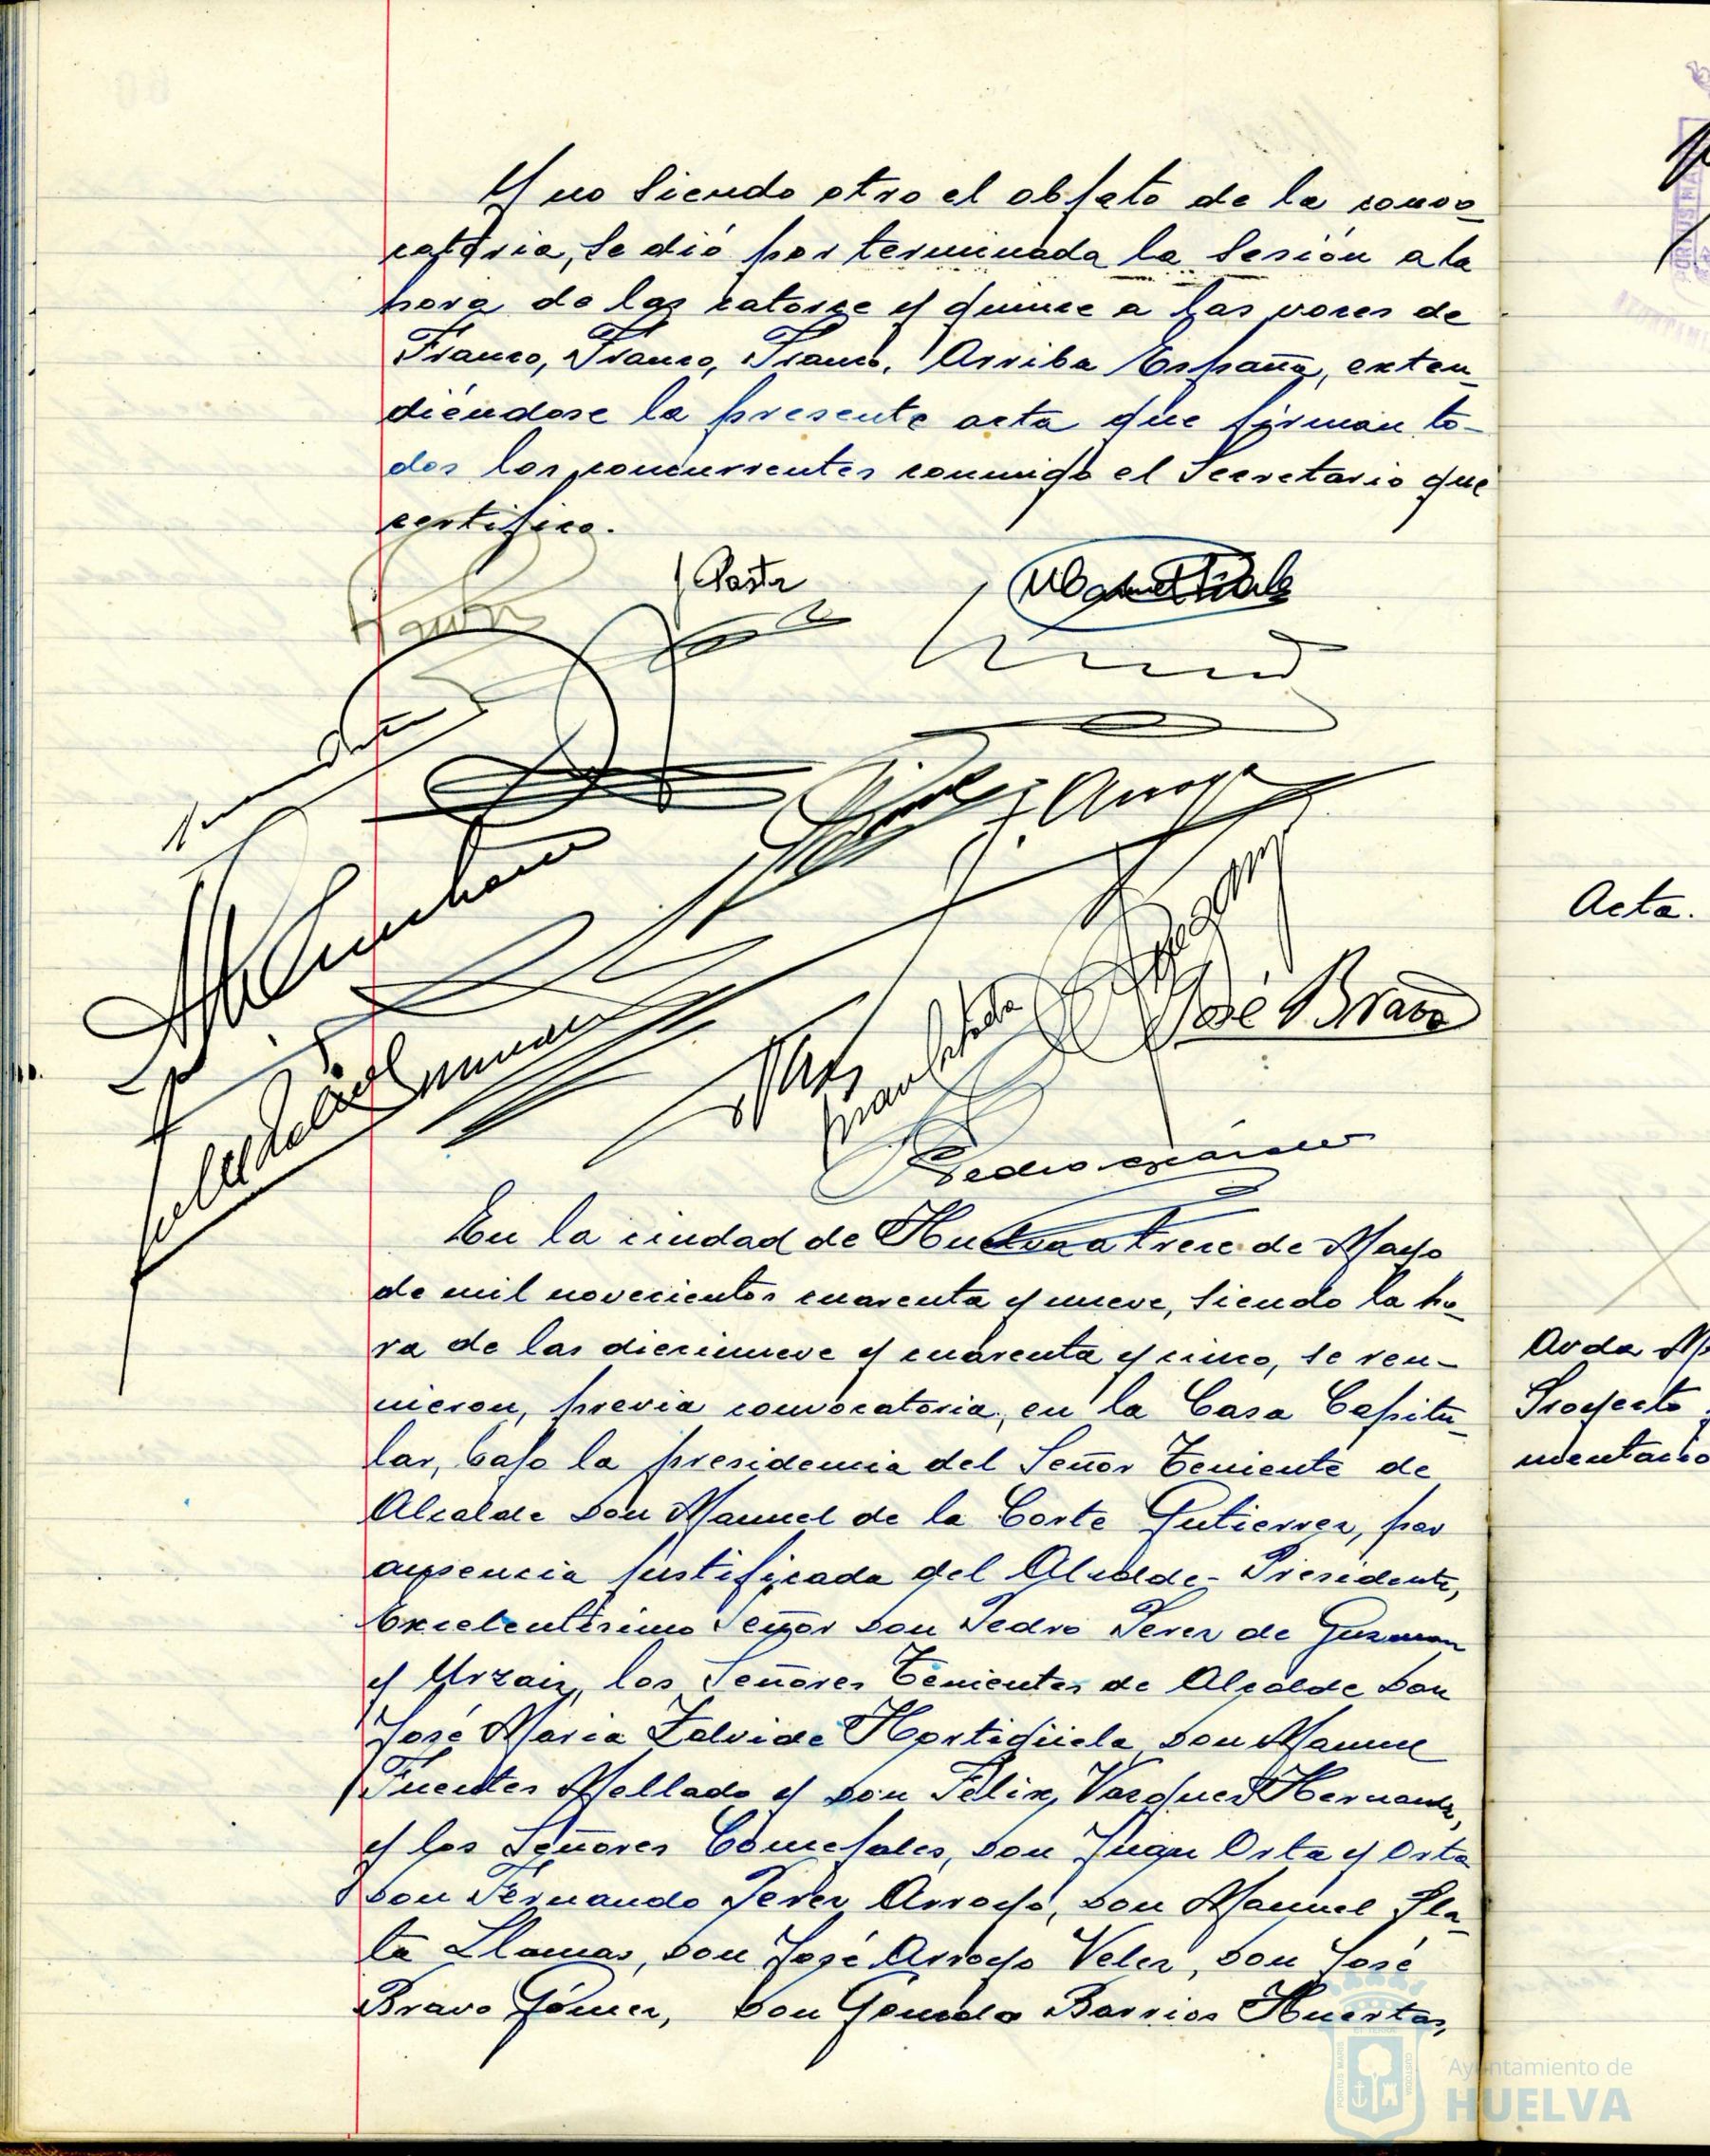 Y no siendo otro el objeto de la convo-
catoria, se dió por terminada la sesión a la
hora de las catorce y quince a las voces de
Franco, Franco, Franco, ¡Arriba España, exten-
diéndose la presente acta que firman to-
dos los concurrentes conmigo el Secretario que
certifico.
J. Arroyo
José Bravo
En la ciudad de Huelva a trece de Mayo
de mil novecientos cuarenta y nueve, siendo la ho-
ra de las diecinueve y cuarenta y cinco, se reu-
nieron, previa convocatoria, en la Casa Capitu-
lar, bajo la presidencia del Señor Teniente de
Alcalde Don Manuel de la Corte Gutierrez, por
ausencia justificada del Alcalde-Presidente,
Excelentísimo Señor Don Pedro Perez de Guzman
y Urzaiz, los Señores Tenientes de Alcalde Don
José Maria Zalvide Hortigüela Don Manuel
Fuentes Mellado y Don Felix Vazquez Hernandez,
y los Señores Concejales, Don Juan Orta y Orta
Don Fernando Perez Arroyo, Don Manuel Pla-
ta Llamas, Don José Arroyo Velez, Don José
Bravo Gómez, Don Gonzalo Barrios Huertas,
Acta.
Avda
Proyecto
mentacio
Ayuntamiento de
HUELVA